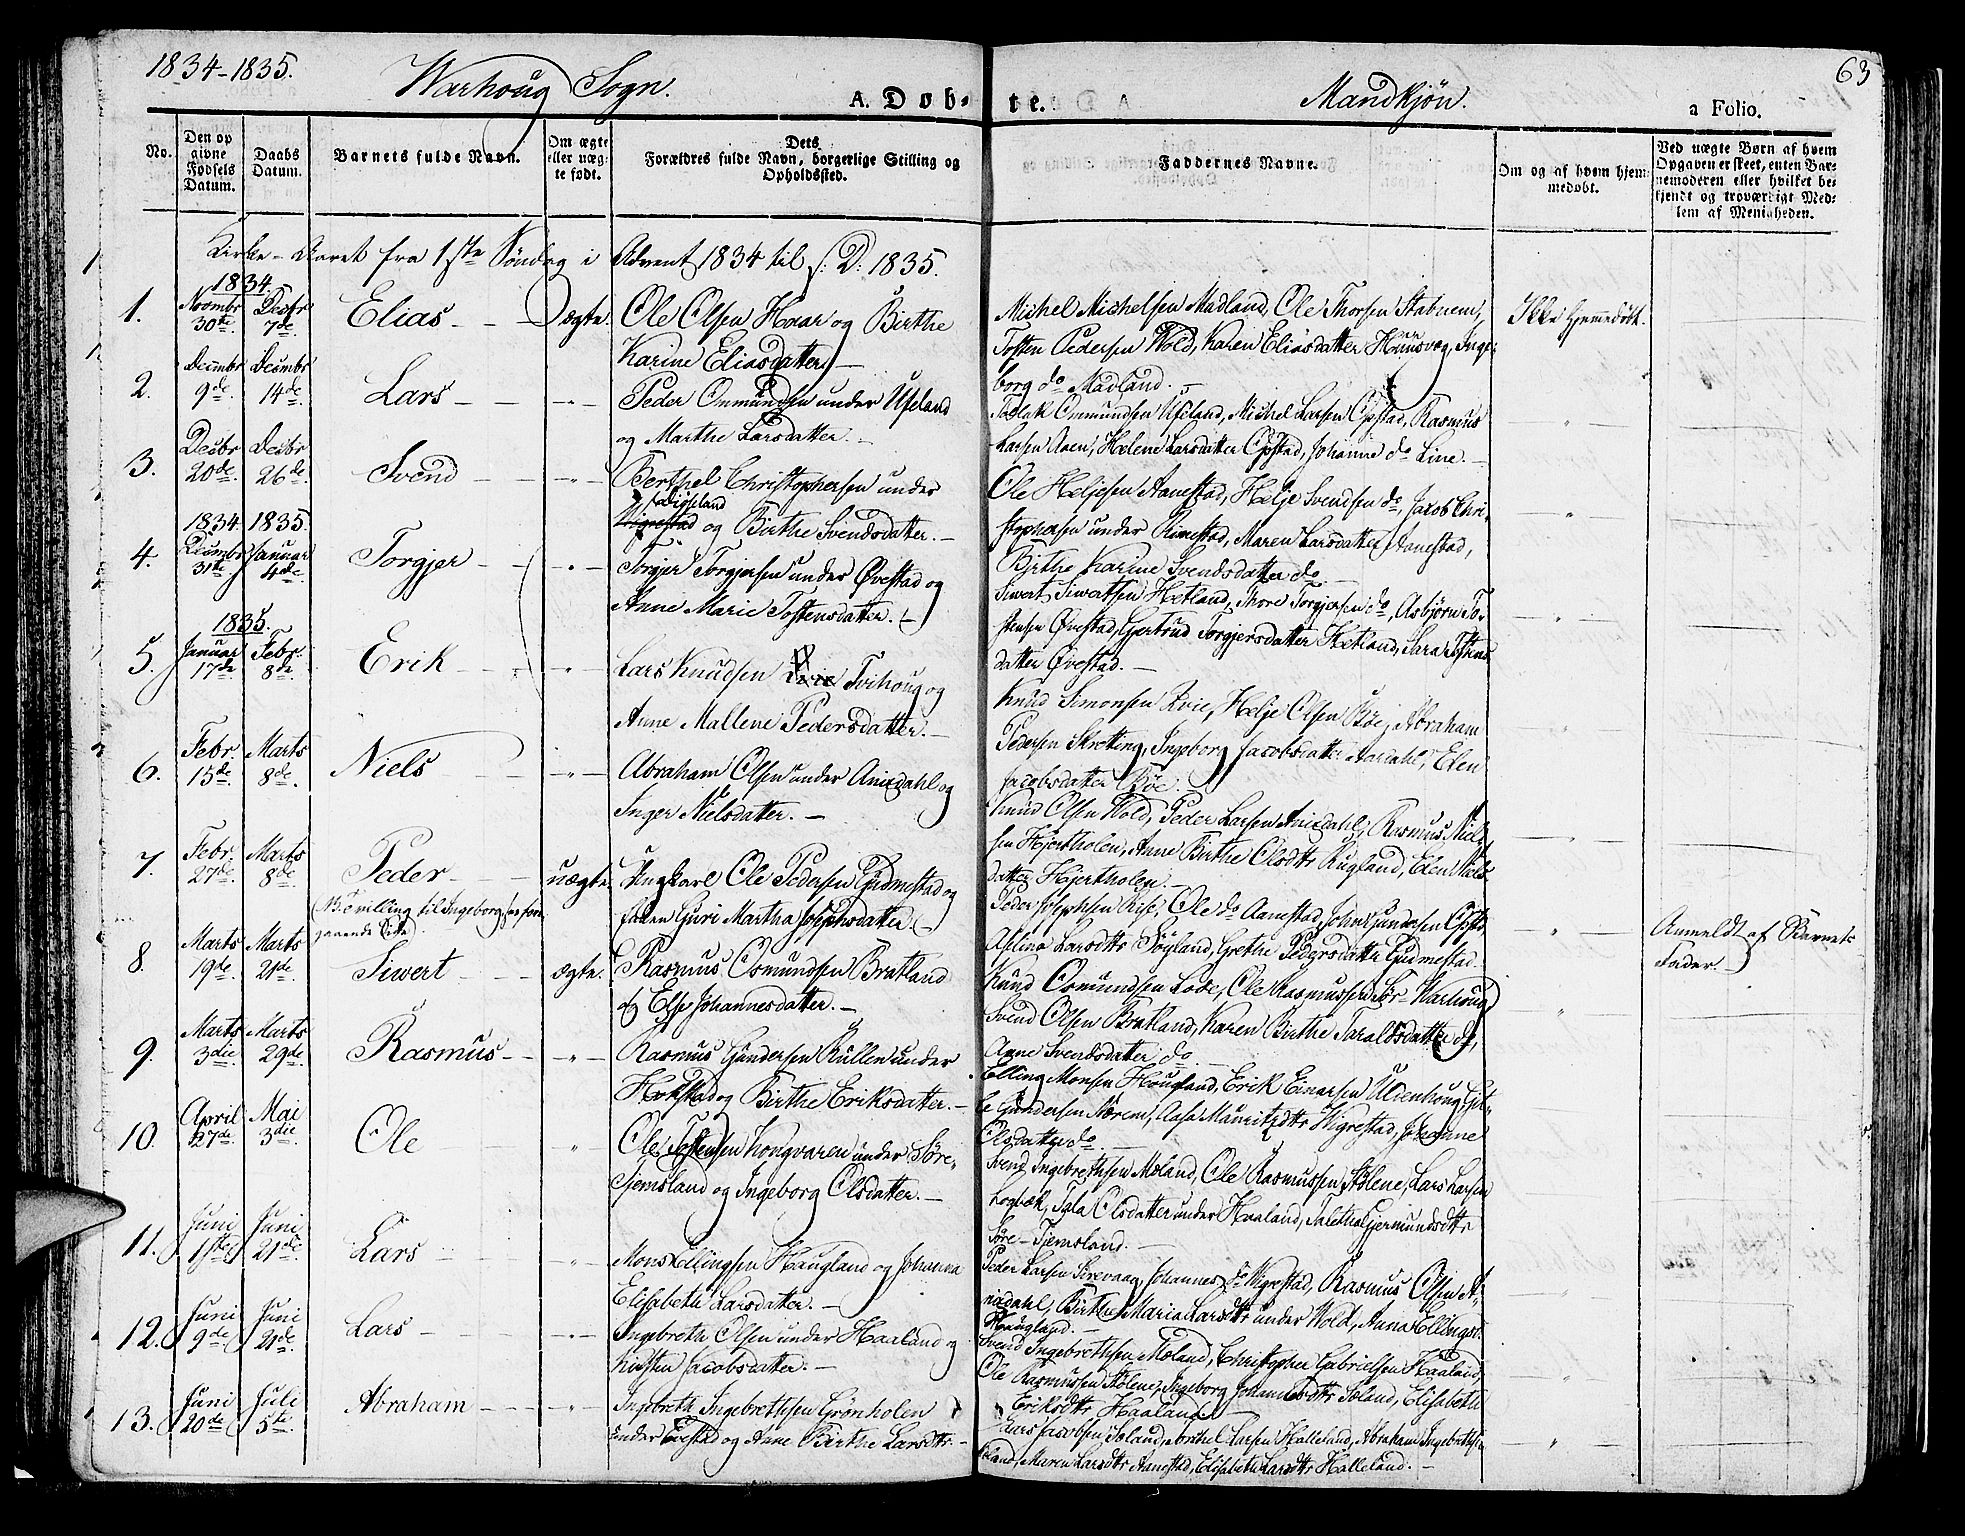 1834-1835.
Warhoug Sogn.
A. Døb-
te.
Mandkjøn.
a Folio.
63
No.
Den opgivne Fødsels Datum.
Daabs Datum.
Barnets fulde Navn.
Om ægte eller uægte født.
Dets Forældres fulde Navn, borgerlige Stilling og Opholdssted.
Faddernes Navne.
Om og af hvem hjemmedøbt.
Ved uægte Børn af hvem Opgaven er skeet, enten Barnemoderen eller hvilket bekjendt og troværdigt Medlem af Menigheden.
Kirke-Aaret fra 1ste Søndag i Advent 1834 til s: D: 1835.
1834
1. Novmbr 30te Desbr 7de Elias ægte. Ole Olsen Haar og Birthe
Karine Eliasdatter.
Michel Michelsen Madland, Ole Thorsen Stabnem,
Tosten Pedersen Wold, Karen Eliasdatter Huusvæg, Inge-
borg do Madland.
Ikke Hjemmedøbt.
2. Decmbr 9de Decmbr 14de Lars Peder Ommundsen under Ueland
og Marthe Larsdatter.
Ommundsen Ueland, Michel Larsen Opstad, Rasmus
Larsen Aaen, Helene Larsdatter Opstad, Johanne do Line.
3. Desbr 20de Desbr 26de Svend Berthel Christophersen under
Wigrestad og Birthe Svendsdatter.
Ole Heljesen Aanestad, Helje Svendsen do, Jacob Chri-
stophersen under Rimestad, Maren Larsdatter Aanestad,
Birthe Karine Svendsdatter do
1834 1835.
4. Decmbr 31te Januar 4de Torgjer Torgjer Torgjersen under Øvestad og
Anne Marie Tostensdatter.
Siwert Siwertsen Hetland, Thore Torgjersen do, Asbjørn To-
stensen Øvestad, Gjertrud Torgjersdatter Hetland, Sara Tostens
datter Øvestad.
1835.
5. Januar 17de Febr. 8de Erik Lars Knudsen Tvihoug og
Anne Mallene Pedersdatter.
Knud Simonsen Kvie, Helje Olsen Bøe, Abraham
Pedersen Skretting, Ingeborg Jacobsdatter Aardahl, Elen
Jacobsdatter Bøe.
6. Febr. 15de Marts 8de Niels Abraham Olsen under Anisdahl og
Inger Nielsdatter.
Knud Olsen Wold, Peder Larsen Anisdahl, Rasmus Niel-
sen Hjertholen, Anne Birthe Olsdtr Rugland, Elen Niels
datter Hjertholen.
7. Febr. 27de Marts 8de Peder uægte. Ungkarl Ole Pedersen Gudmestad og
Guri Martha Josephsdatter
(NB. Tvilling til Ingeborg paa fore-
gaaende Side)
Peder Josephsen Rise, Ole do Aanestad, John Gundersen Opstad
Aselina Larsdtr Søyland, Grethe Pedersdatter Gudmestad.
Anmeldt af Barnets
Fader.
8. Marts 19de Marts 21de Siwert ægte. Rasmus Osmundsen Bratland
og Else Johannesdatter.
Knud Osmundsen Lode, Ole Rasmussen Sør-Warhoug
Svend Olsen Bratland, Karen Birthe Taraldsdatter do,
Anne Svendsdatter do
9. Marts 3die Marts 29de Rasmus Rasmus Gundersen Kullen under
og Birthe Eriksdatter.
Elling Monsen Hougland, Erik Einarsen Uldenhoug, Git-
le Gundersen Nærem, Aasa Mauritzdtr Wigrestad, Johanne
Olsdatter do
10. April 27de Mai 3die Ole Ole Tostensen Kongvaren under Søre-
Tjemsland og Ingeborg Olsdatter.
Svend Ingebrethsen Moland, Ole Rasmussen Stølene, Lars Larsen
Logbæk, Tala Olsdatter under Haaland, Talethe Gjermundsdtr
Søre-Tjemsland.
11. Juni 1ste Juni 21de Lars Mons Ellingsen Haugland og Johanna
Elisabeth Larsdatter.
Peder Larsen Sirevaag, Johannes do Wigrestad, Rasmus Olsen A-
nisdahl, Birthe Maria Larsdtr under Wold, Anna Ellingsd.
Haugland.
12. Juni 9de Juni 21de Lars Ingebreth Olsen under Haaland og
Kirsten Jacobsdatter.
Svend Ingebrethsen Moland, Christopher Gabrielsen Haaland,
Ole Rasmussen Stølene, Ingeborg Johannesdtr Joland, Elisabeth
Eriksdtr Haaland
13. Juni 20de Juli 5te Abraham Ingebreth Ingebrethsen Grønholen
under og Anne Birthe Larsdtr
Lars Jacobsen Joland, Larsen Halleland, Abraham Ingebrethsen
Maren Larsdtr Aanestad, Elisabeth Larsdtr Halleland.